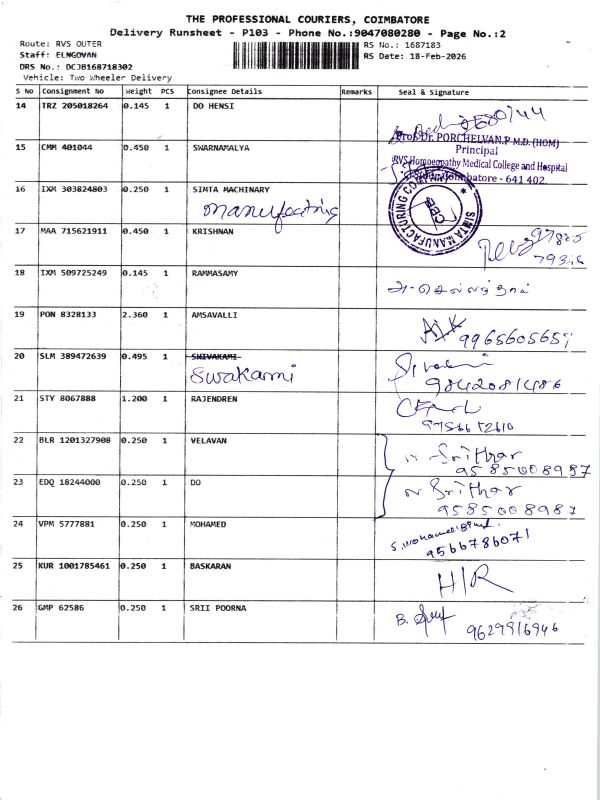 THE PROFESSIONAL COURIERS, COIMBATORE
Delivery Runsheet - P103 - Phone No.:9047080280 - Page No.:2
Route: RVS OUTER
RS No.: 1687183
Staff: ELNGOVAN
RS Date: 18-Feb-2026
DRS No.: DCJB168718302
Vehicle: Two Wheeler Delivery
S No Consignment No Weight PCS Consignee Details Remarks Seal & Signature
14 TRZ 205018264 0.145 1 DO HENSI
Prof. Dr. PORCHELVAN.P M.D. (HOM)
15 CMM 401044 0.450 1 SWARNAMALYA
Principal
RVS Homoeopathy Medical College and Hospital
Coimbatore - 641 402
16 IXM 303824803 0.250 1 SIMTA MACHINARY
manufeating
SIMTA MANUFACTURING COMPANY
17 MAA 715621911 0.450 1 KRISHNAN
18 IXM 509725249 0.145 1 RAMMASAMY
19 PON 8328133 2.360 1 AMSAVALLI
9965605651
20 SLM 389472639 0.495 1 SHIVAKAMI
Swakami
9842081486
21 STY 8067888 1.200 1 RAJENDREN
22 BLR 1201327908 0.250 1 VELAVAN
N Srithar
9585008987
23 EDQ 18244000 0.250 1 DO
N Srithar
9585008987
24 VPM 5777881 0.250 1 MOHAMED
9566786071
25 KUR 1001785461 0.250 1 BASKARAN
H/R
26 GMP 62586 0.250 1 SRII POORNA
9629916946